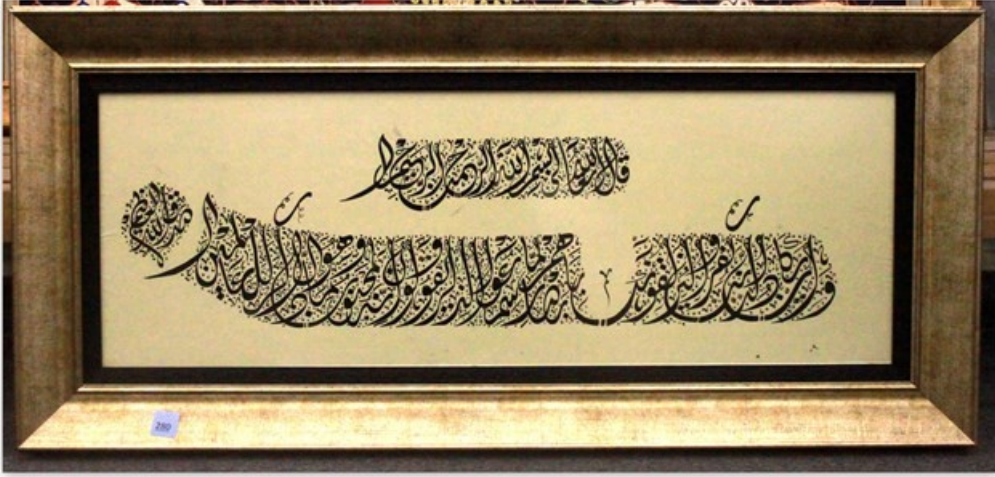 قال الله تعالى بسم الله الرحمن الرحيم
وإن يكاد الذين كفروا ليزلقونك بأبصارهم لما سمعوا الذكر ويقولون إنه لمجنون وما هو إلا ذكر للعالمين
صدق الله العظيم
280